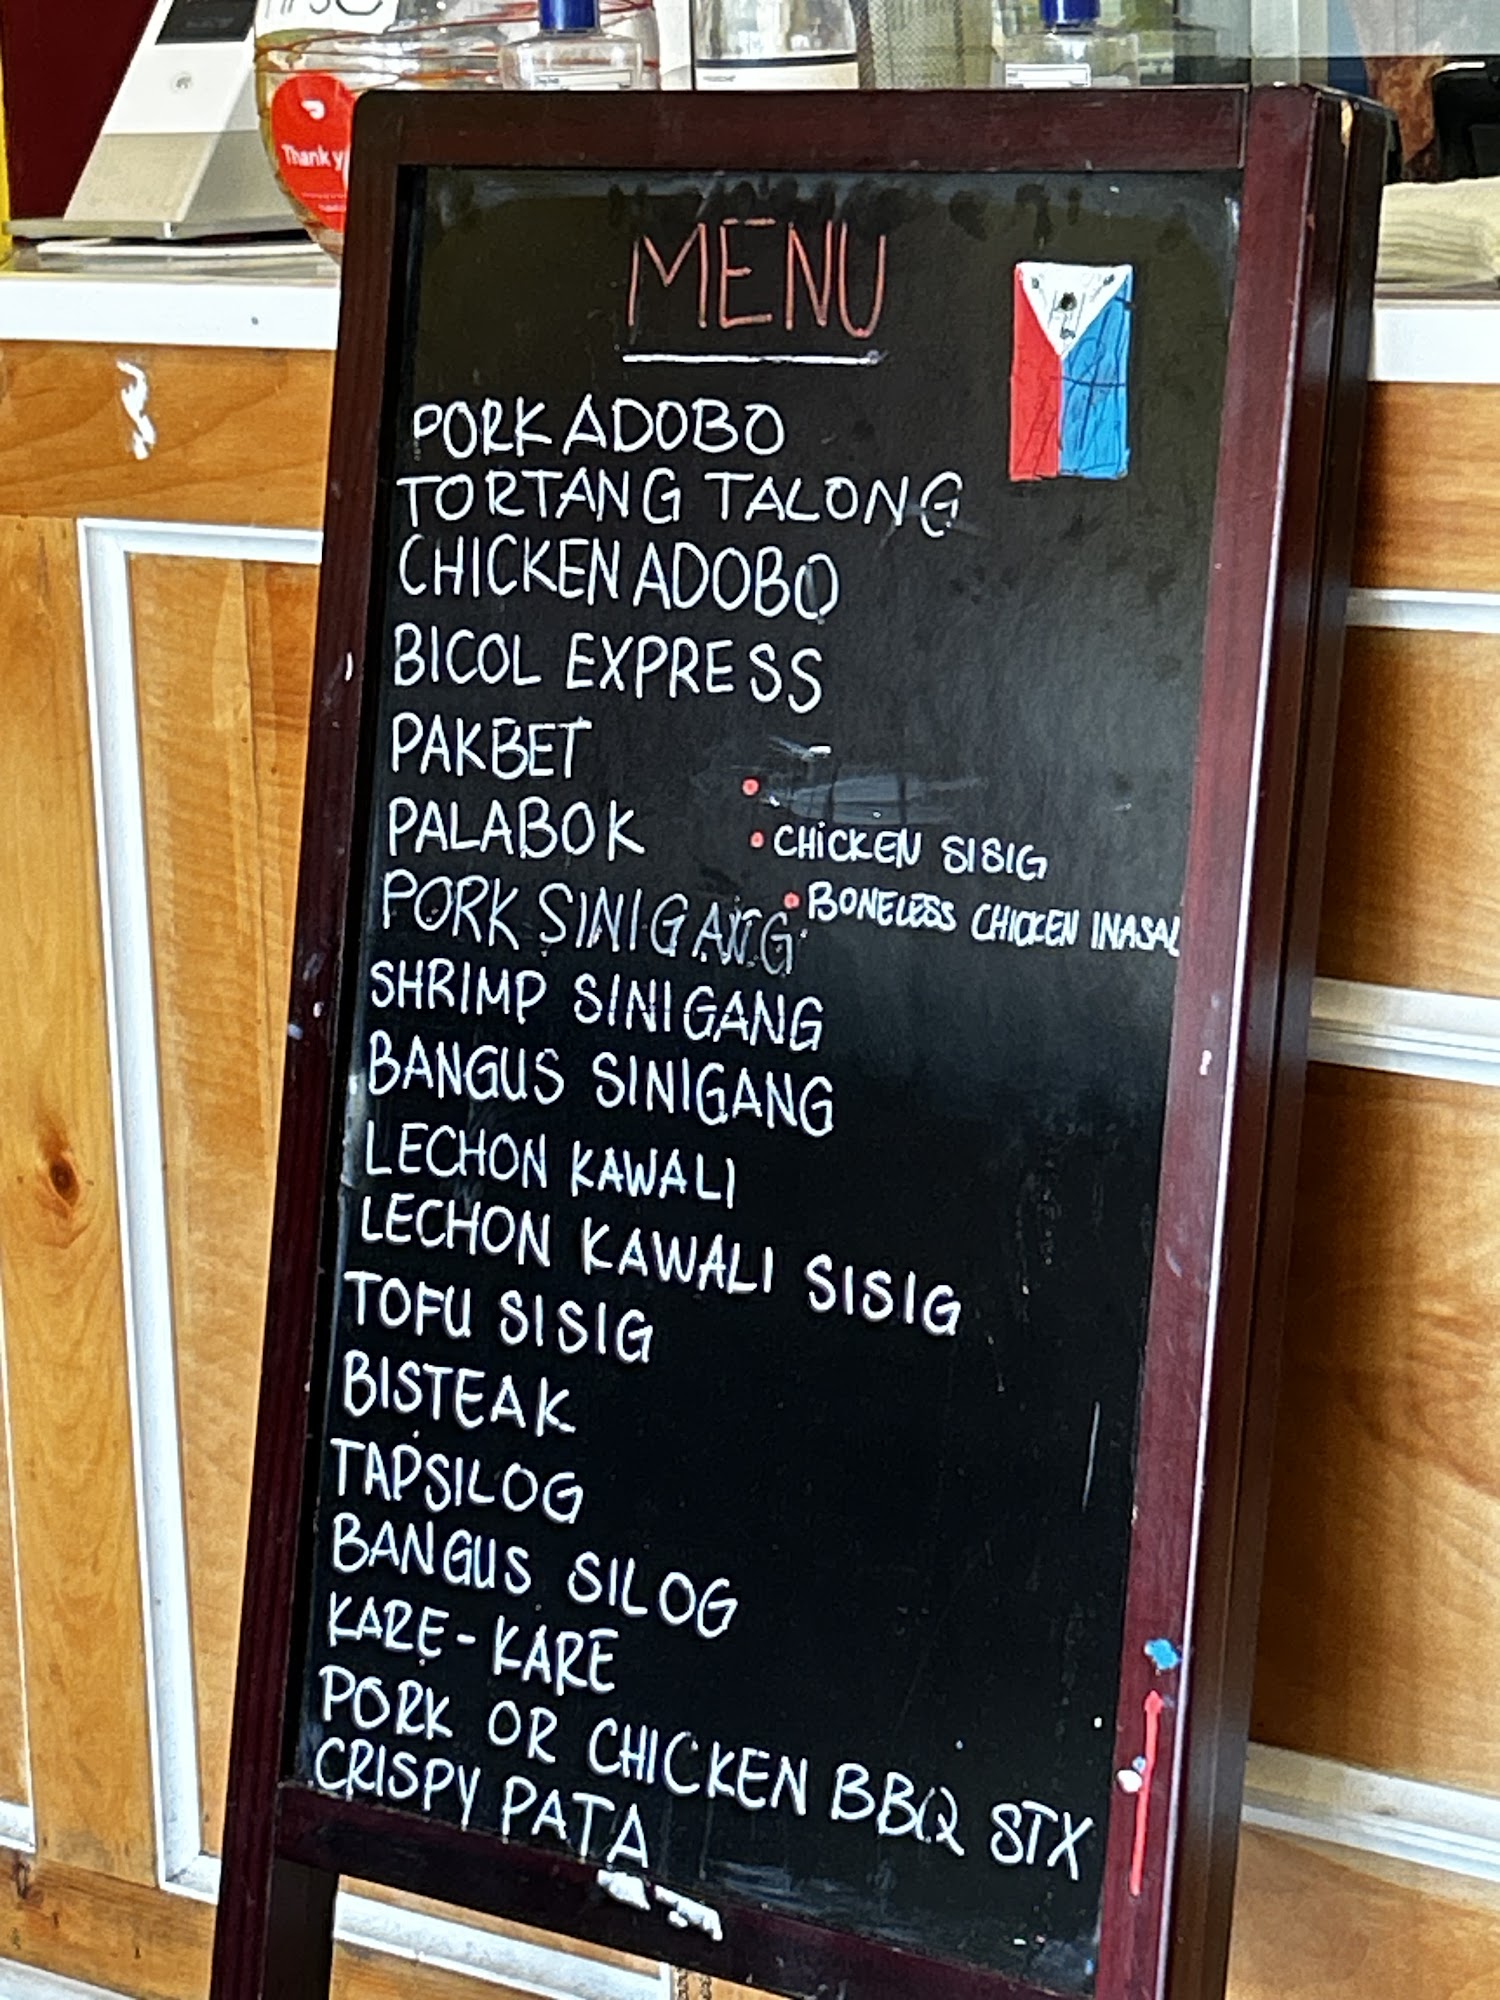 Thank y
MENU
PORK ADOBO
TORTANG TALONG
CHICKEN ADOBO
BICOL EXPRESS
PAKBET
PALABOK
• CHICKEN SISIG
PORK SINIGANG
• BONELESS CHICKEN INASAL
SHRIMP SINIGANG
BANGUS SINIGANG
LECHON KAWALI
LECHON KAWALI SISIG
TOFU SISIG
BISTEAK
TAPSILOG
BANGUS SILOG
KARE-KARE
PORK OR CHICKEN BBQ STX
CRISPY PATA